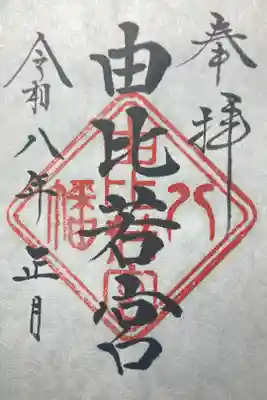 奉拝
由比若宮
八幡
令和八年正月